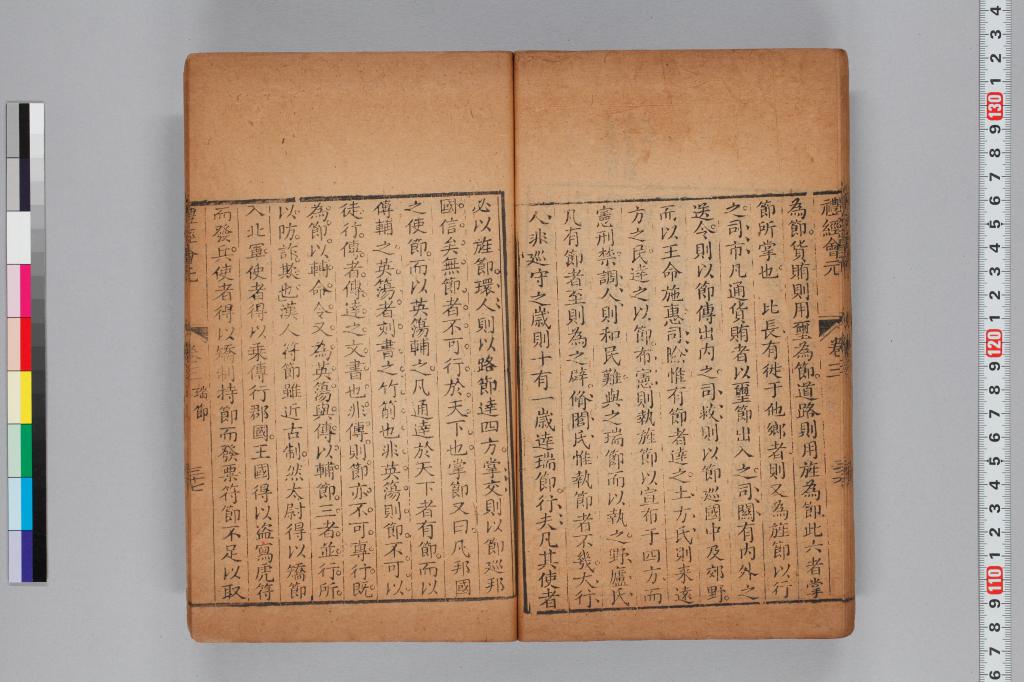 禮經會元
卷三
三六
為節貨賄則用璽為節道路則用旌為節此六者掌
節所掌也 比長有徙于他鄉者則又為旌節以行
之司市凡通貨賄者以璽節出入之司關有內外之
送令則以節傳出內之司救則以節巡國中及郊野
而以王命施惠司險惟有節者達之土方氏則來遠
方之民達之以節布憲則執旌節以宣布于四方而
憲刑禁調人則和民難與之瑞節而以執之野廬氏
凡有節者至則為之辟脩閭氏惟執節者不幾大行
人非巡守之歲則十有一歲達瑞節行夫凡其使者
必以旌節環人則以路節達四方掌交則以節巡邦
國信矣無節者不可行於天下也掌節又曰凡邦國
之使節而以英蕩輔之凡通達於天下者有節而以
傳輔之英蕩者刻書之竹箭也非英蕩則節不可以
徒行傳者傳達之文書也非傳則節亦不可專行既
為節以轉命令又為英蕩與傳以輔節三者並行所
以防詐欺也漢人符節雖近古制然太尉得以矯節
入北軍使者得以乘傳行郡國王國得以盜寫虎符
而發兵使者得以矯制持節而發粟符節不足以取
禮經會元
瑞節
三七